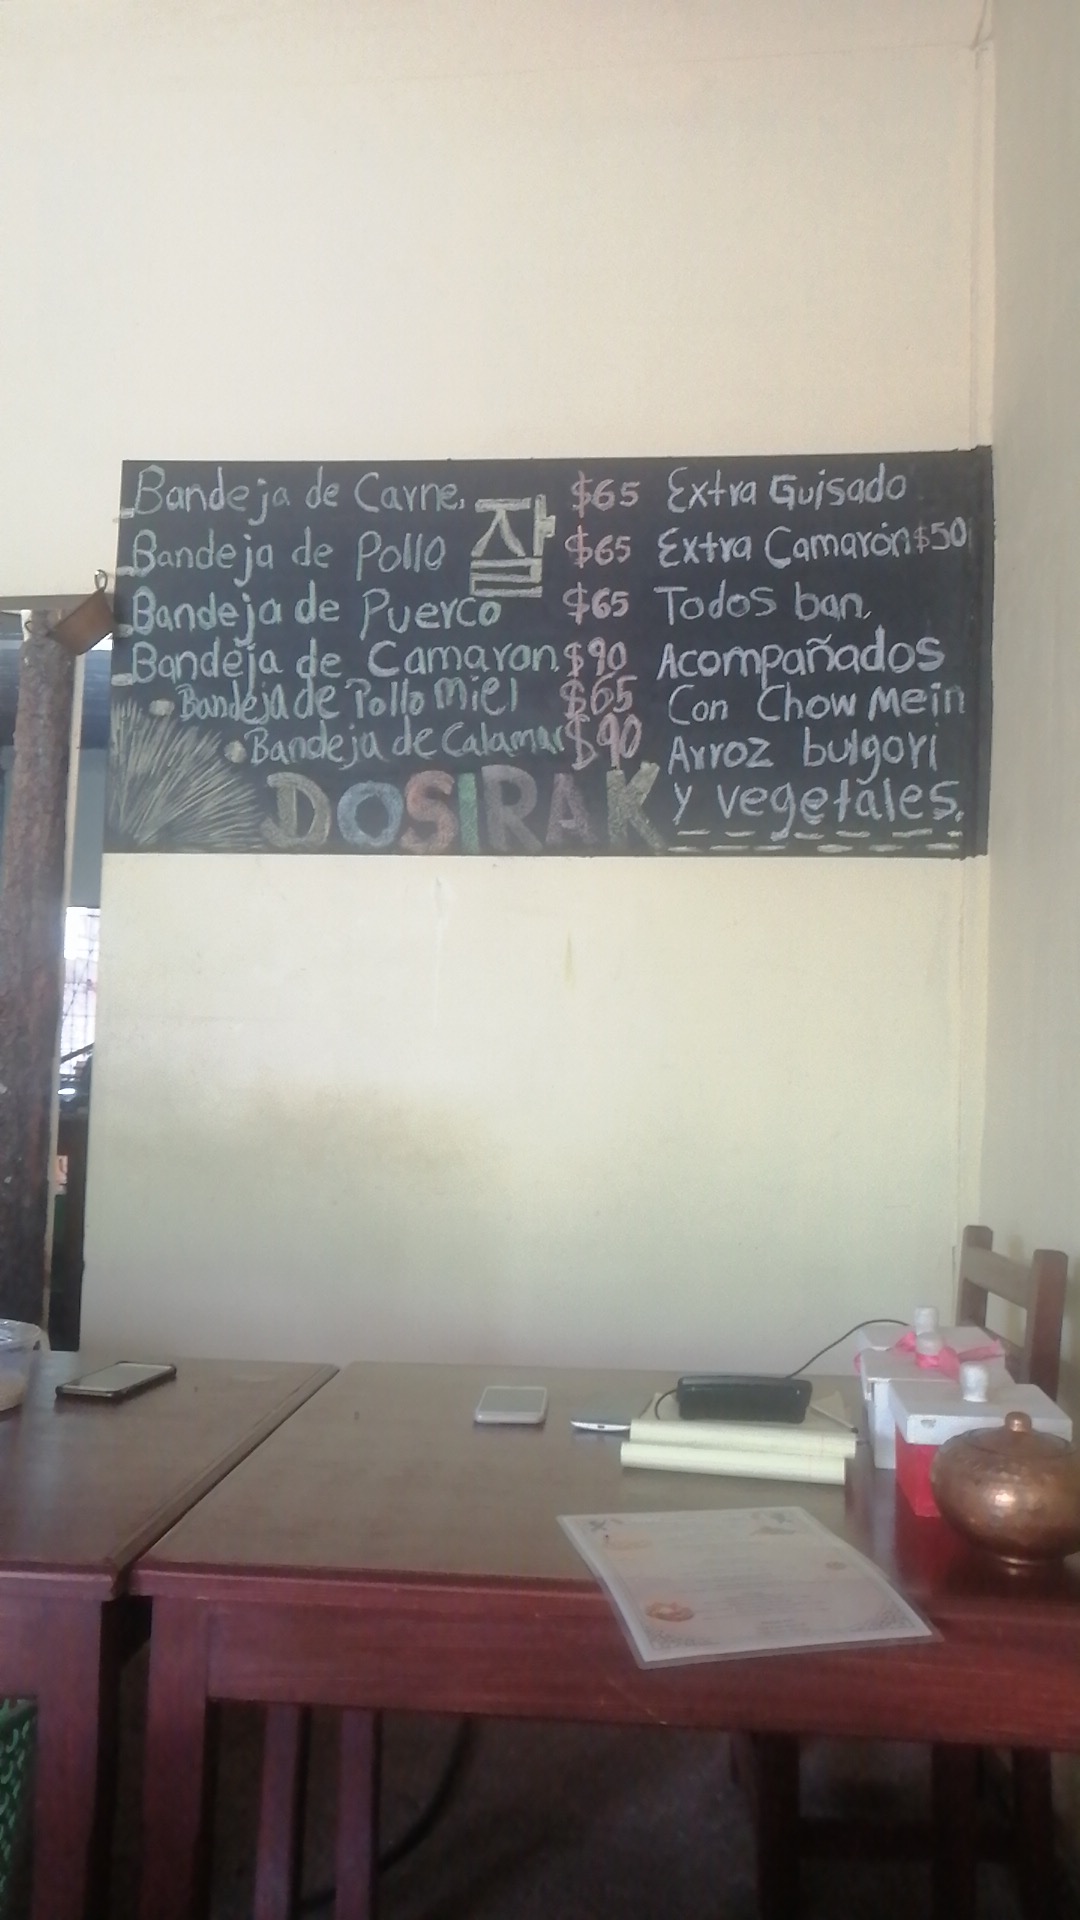 Bandeja de Carne. $65
Bandeja de Pollo $65
잘
Bandeja de Puerco $65
Bandeja de Camaron. $90
Bandeja de Pollo miel $65
Bandeja de Calamar $90
DOSIRAK
Extra Guisado
Extra Camarón $50
Todos ban,
Acompañados
Con Chow Mein
Arroz bulgori
y vegetales.